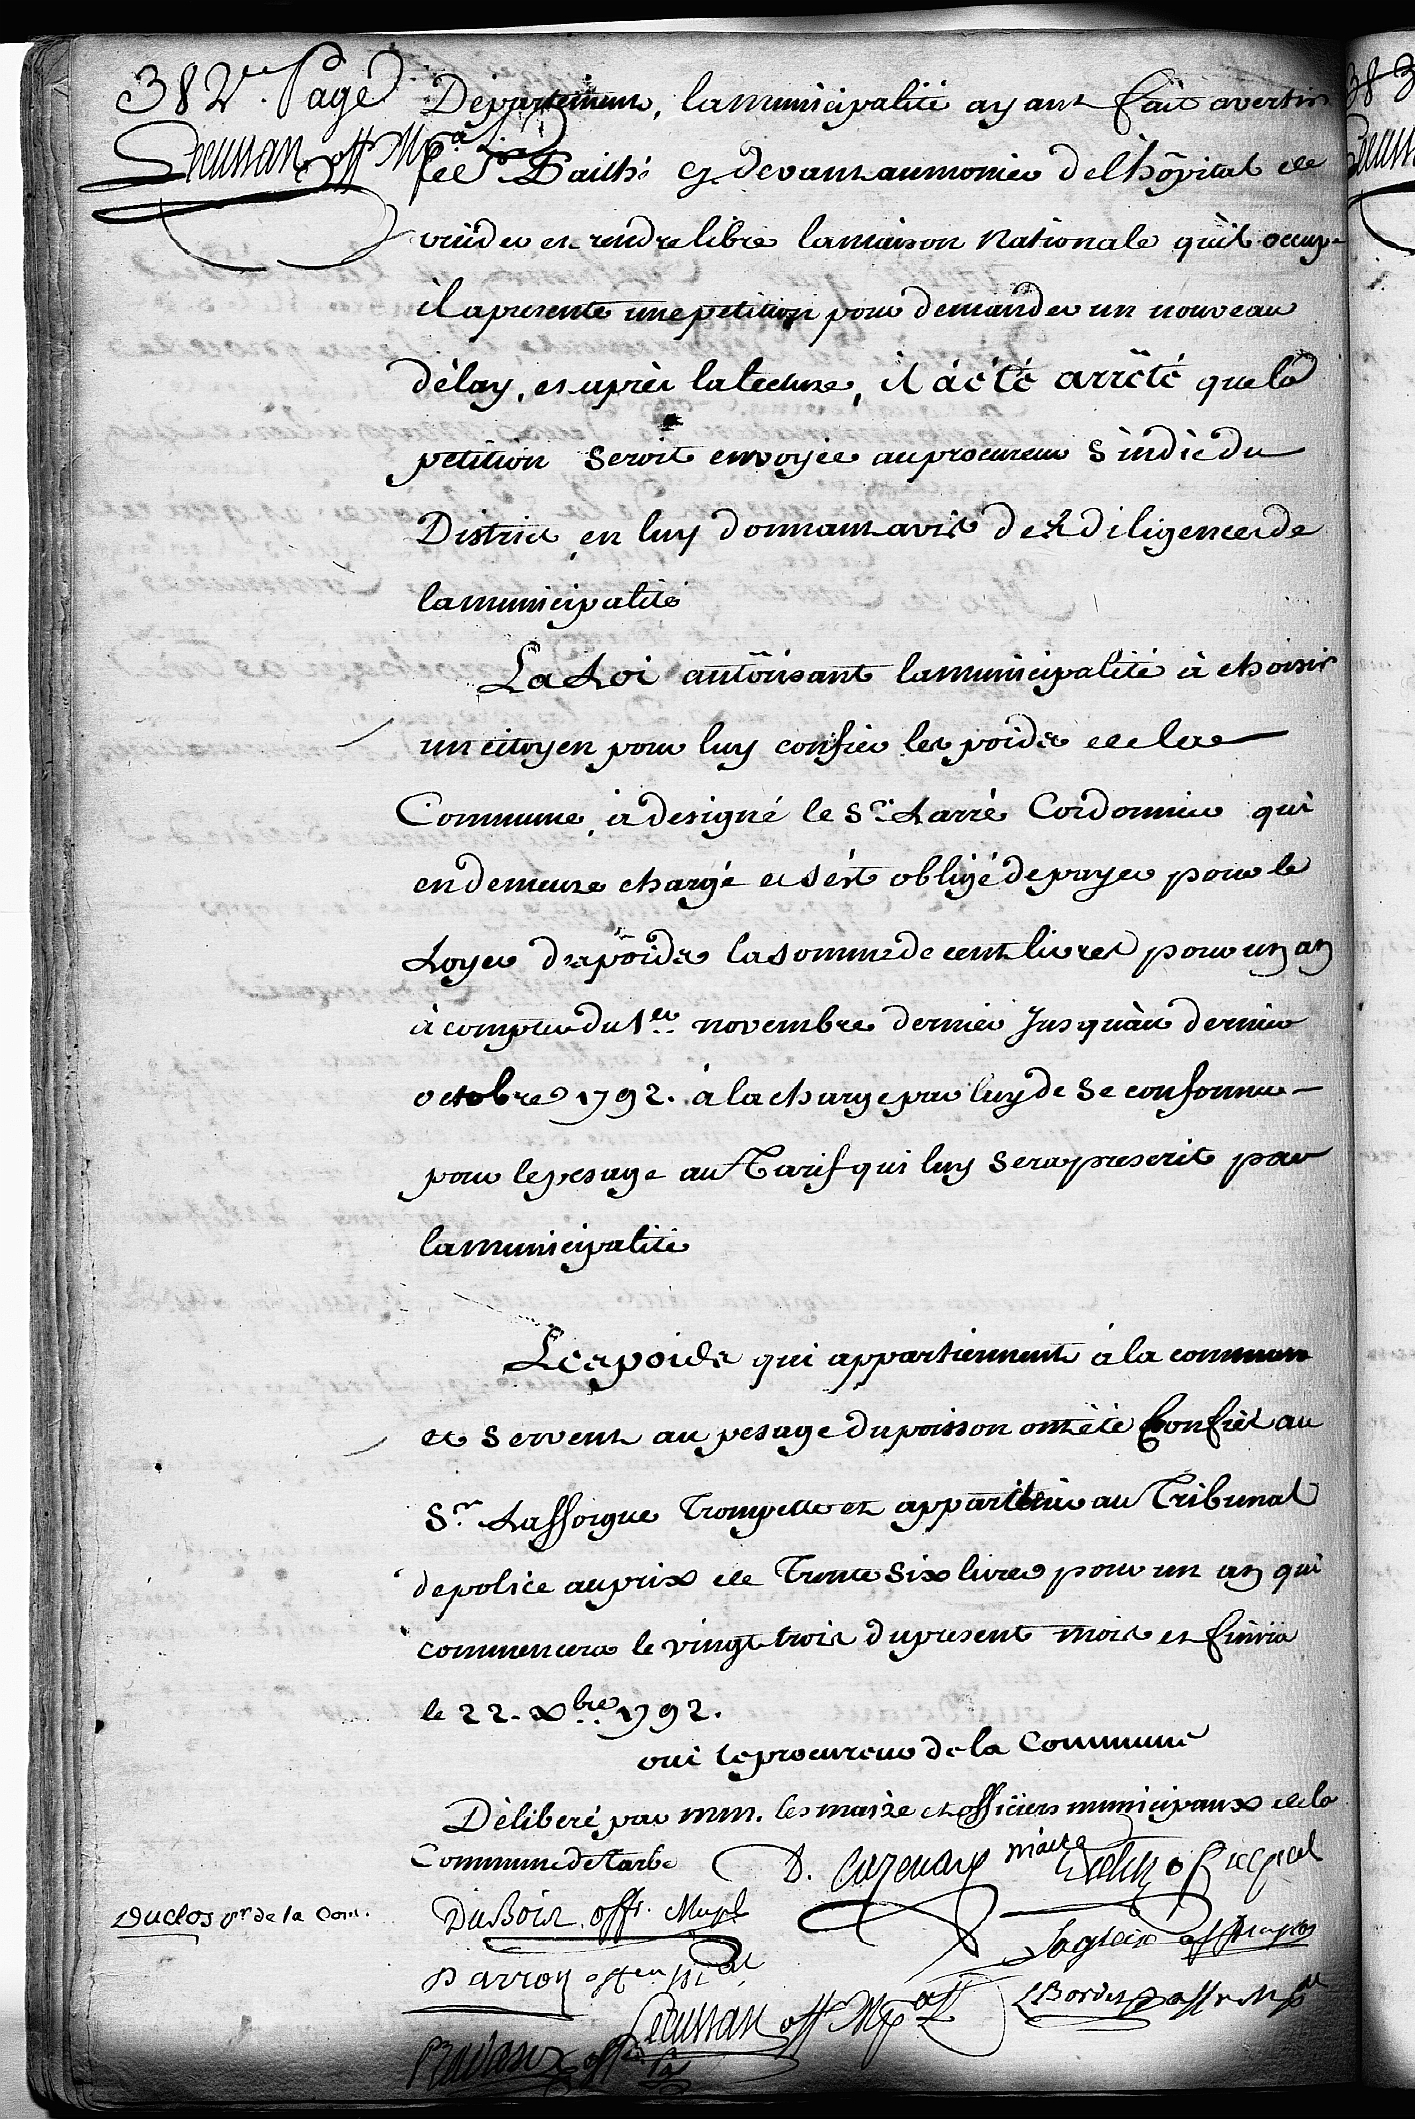 382e. Page
Lecussan off Mpal
Département, la municipalité ayant fait avertir
le Sr. Dailhé cy devant aumonier de l'hôpital de
vuider et rendre libre la maison Nationale qu'il occupe
il a presenté une petition pour demander un nouveau
délay, et après la lecture, il a été arrêté que la
petition seroit envoyée au procureur sindic du
District en luy donnant avis des diligences de
la municipalité
La Loi autôrisant la municipalité à choisir
un citoyen pour luy confier les poids de la
Commune, a designé le Sr. Larré Cordonnier qui
en demeure chargé et s'est obligé de payer pour le
Loyer des poids la somme de cent livres pour un an
à compter du 1er. novembre dernier jusqu'au dernier
octobre 1792. à la charge par luy de se conformer
pour le pesage au Tarif qui luy sera prescrit par
la municipalité
Les poids qui appartiennent à la commune
et servent au pesage du poisson ont été confiés au
Sr. Lafforgue Trompette et appariteur au Tribunal
de police au prix de Trente six livres pour un an qui
commencera le vingt trois du present mois et finira
le 22. Xbre. 1792.
oui le procureur de la Commune
Déliberé par mm. les maire et officiers municipaux de la
Commune de Tarbe D. Cazenave maire
Duclos pr de la Com. DuBois. offr. Mupl
Darroy
Lecussan off Mpal